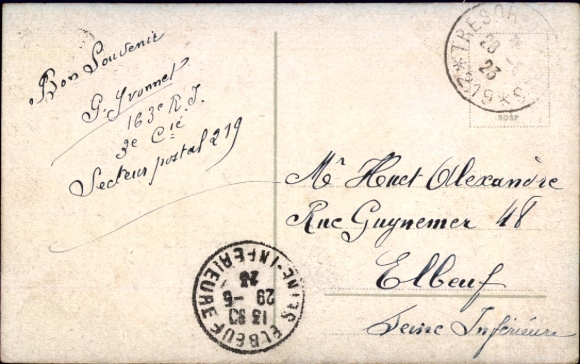 Bon Souvenir
G. Yvonnet
163e R.I.
3e Cie
Secteur postal 219
TRESOR
28
23
*219*
BOSF
Mr Huet Alexandre
Rue Guynemer 48
Elbeuf
Seine Inférieure
ELBEUF
SEINE-INFERIEURE
13
29-5
23